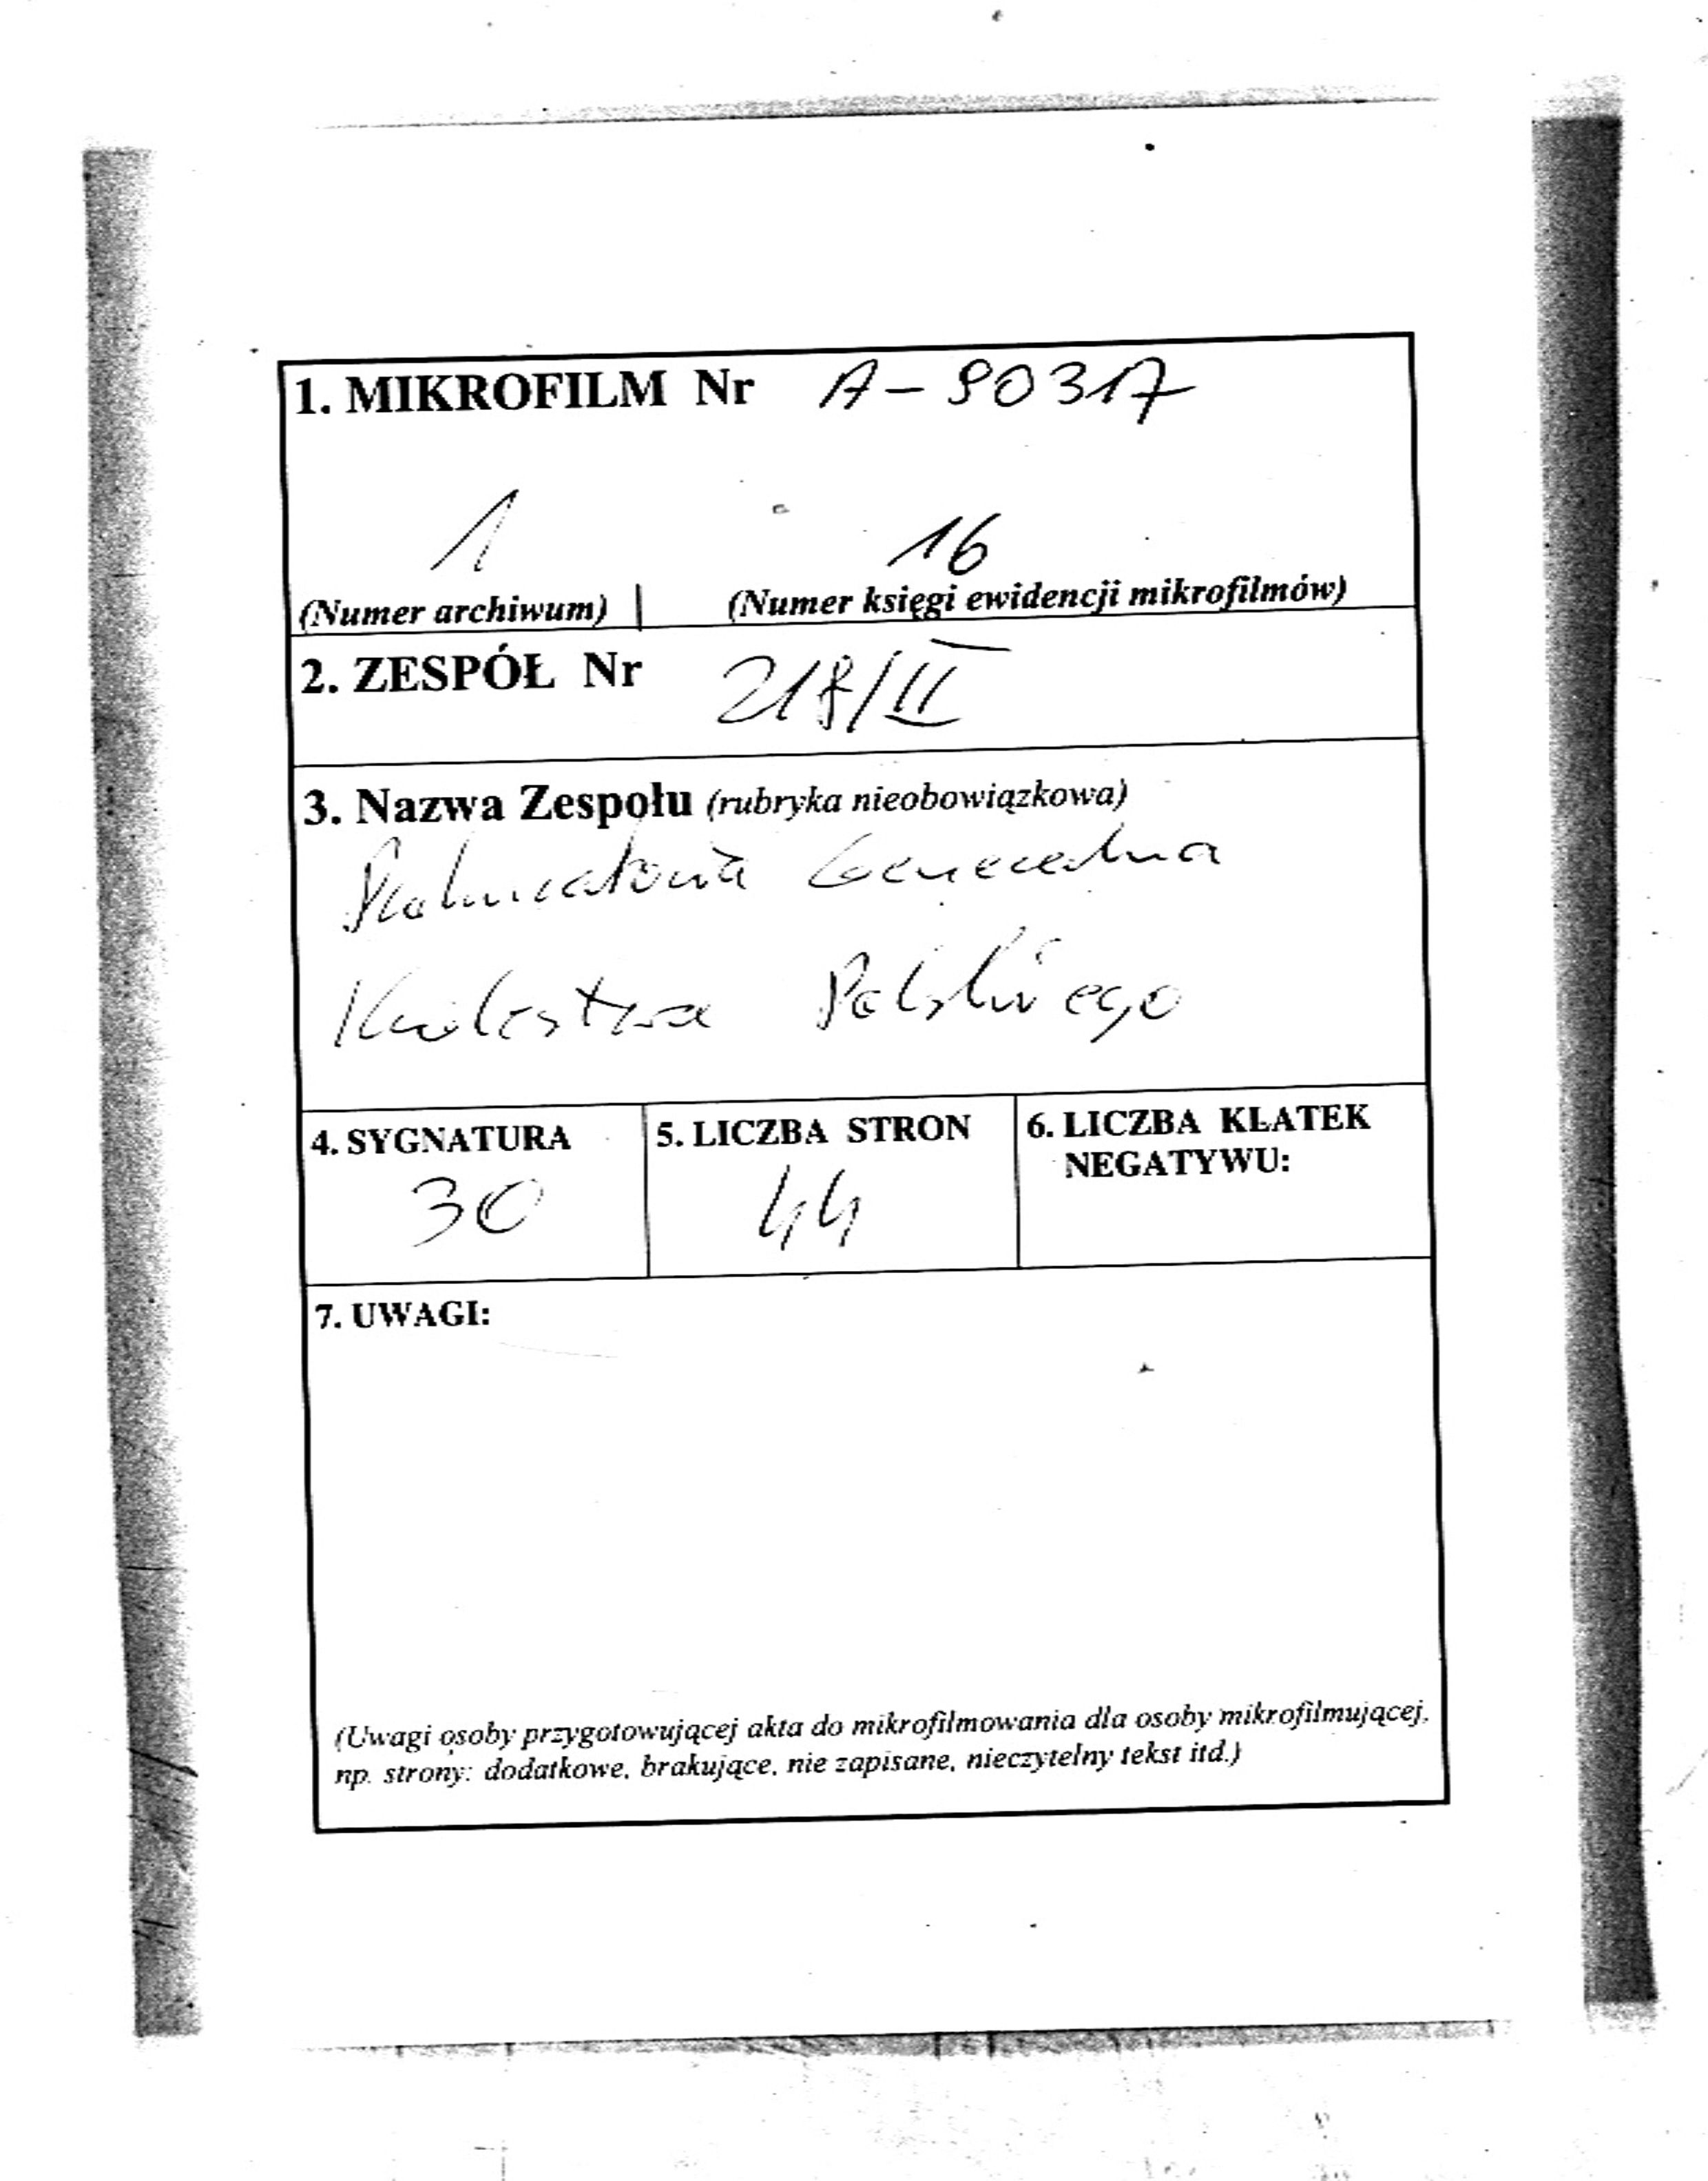 1. MIKROFILM Nr A-90317
1 16
(Numer archiwum) | (Numer księgi ewidencji mikrofilmów)
2. ZESPÓŁ Nr 218/II
3. Nazwa Zespołu (rubryka nieobowiązkowa)
Prokuratoria Generalna
Królestwa Polskiego
4. SYGNATURA
30
5. LICZBA STRON
44
6. LICZBA KLATEK
NEGATYWU:
7. UWAGI:
(Uwagi osoby przygotowującej akta do mikrofilmowania dla osoby mikrofilmującej,
np. strony: dodatkowe, brakujące, nie zapisane, nieczytelny tekst itd.)